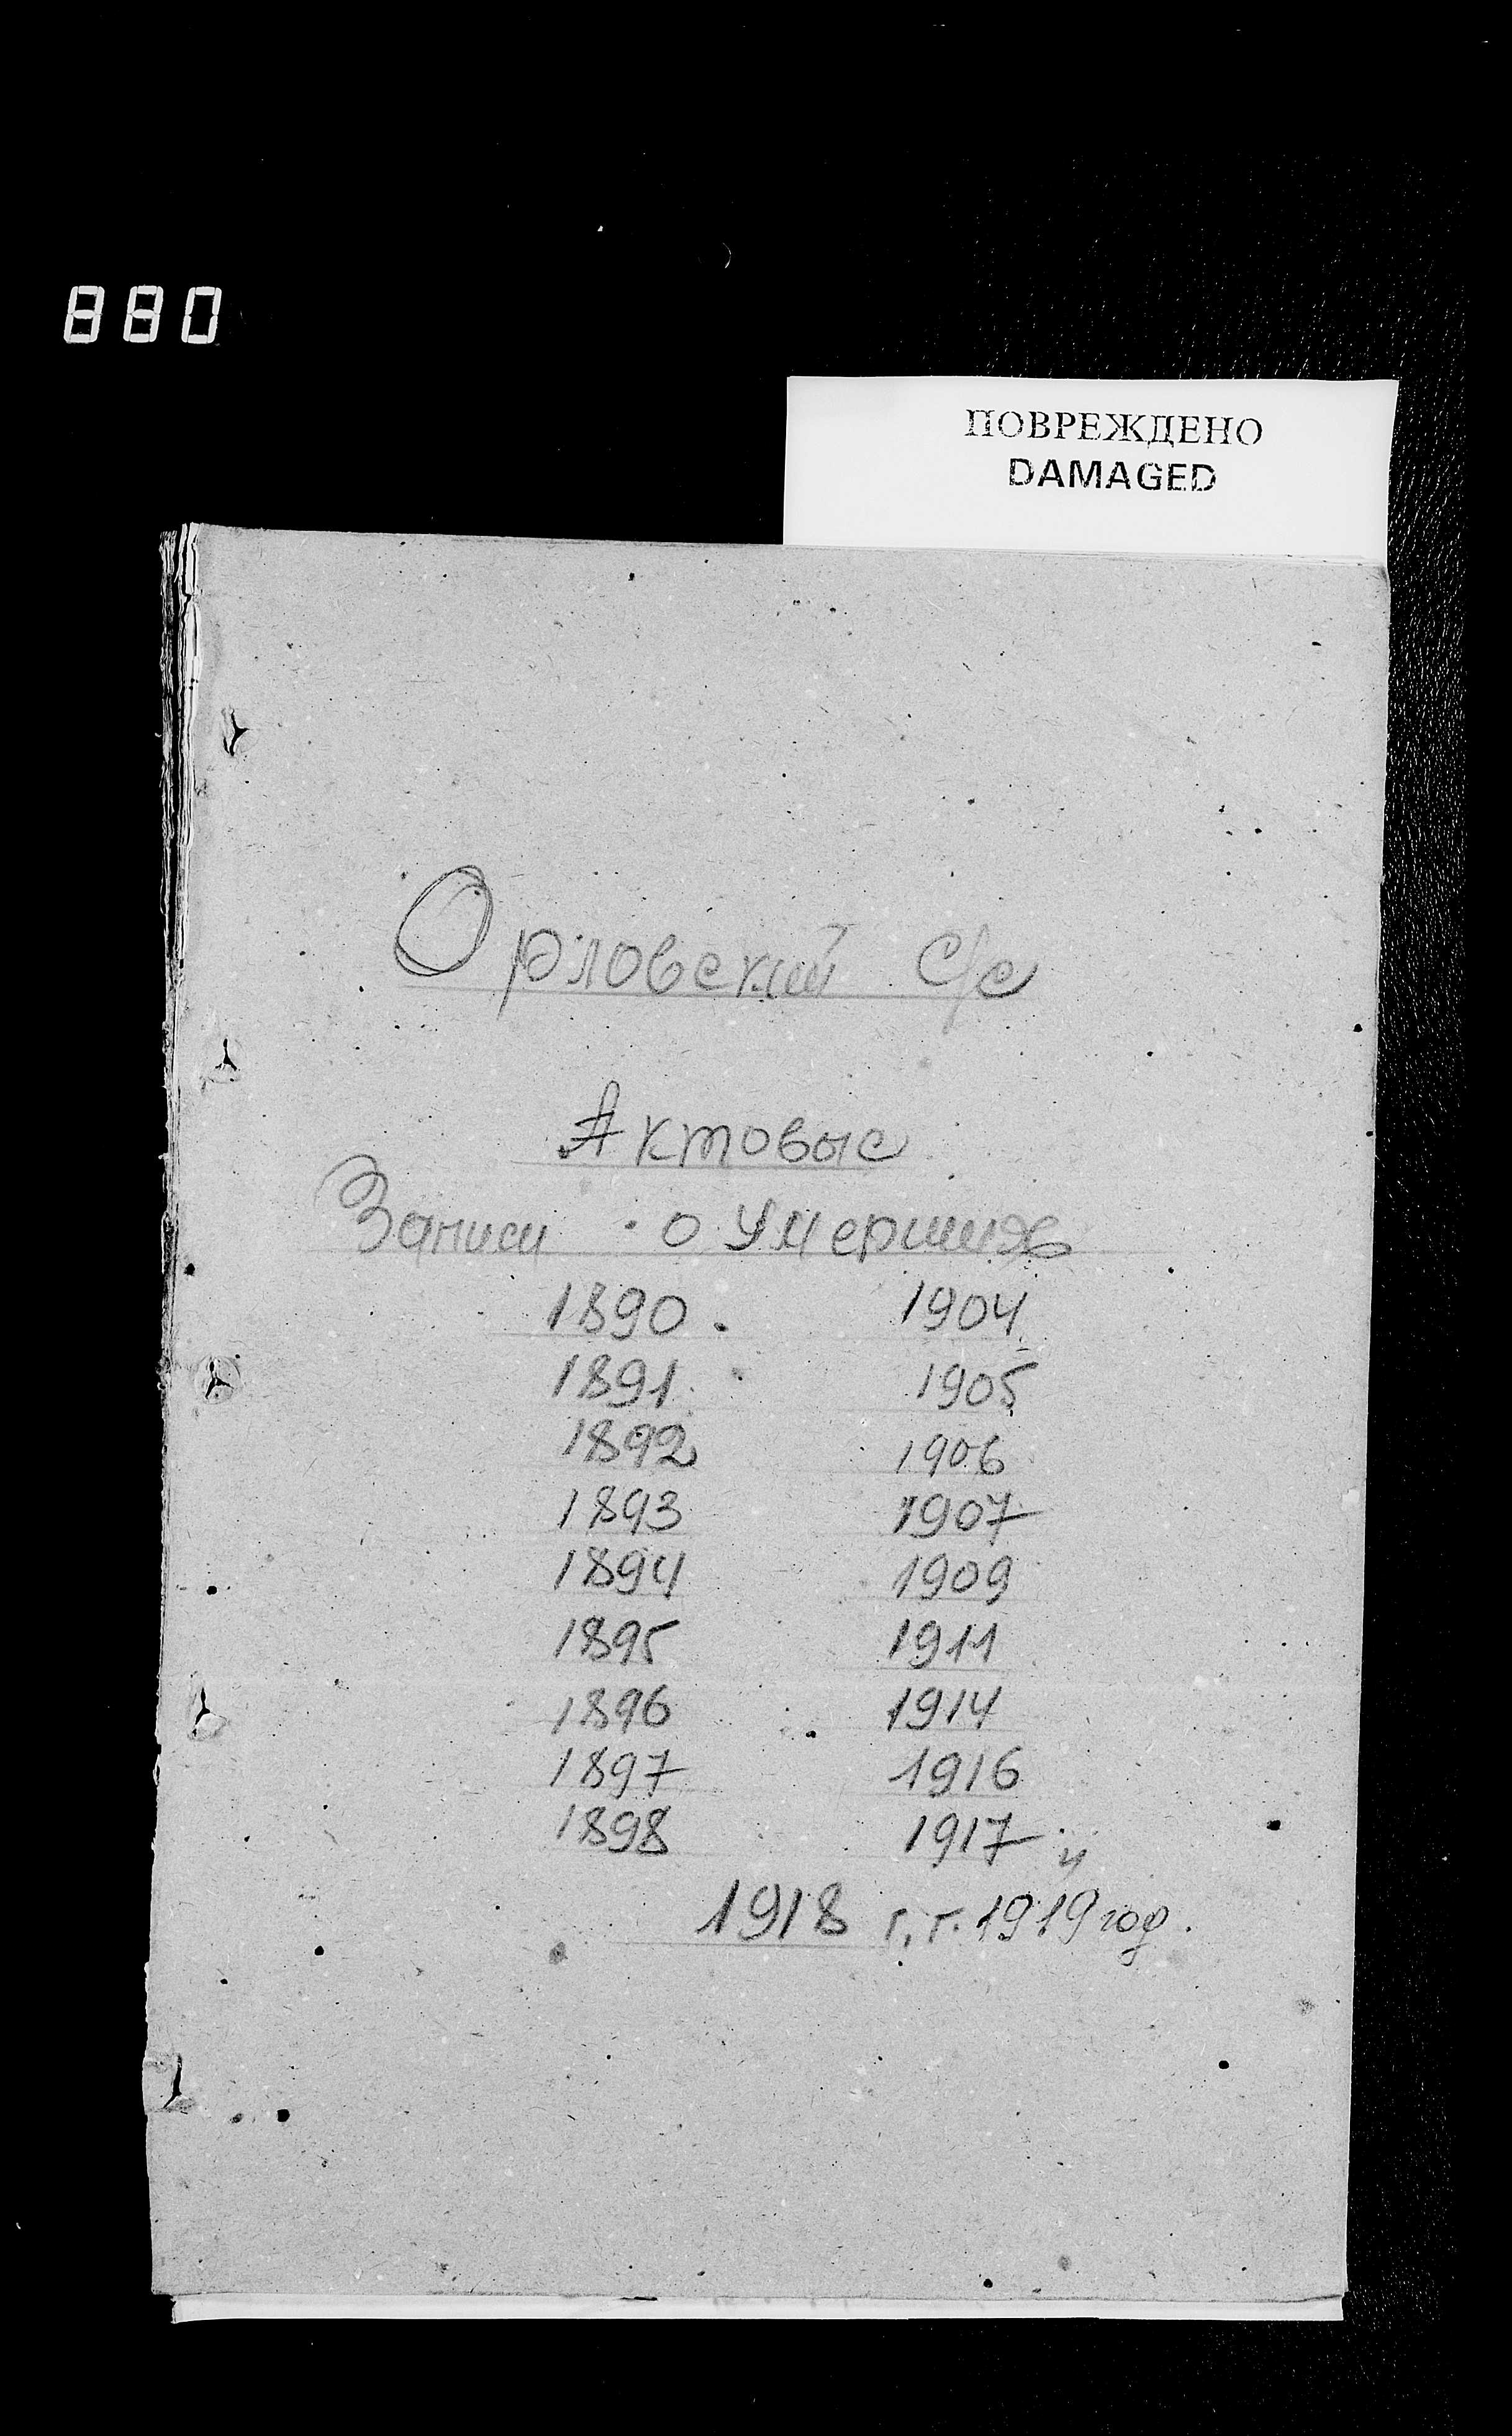 880
ПОВРЕЖДЕНО
DAMAGED
Орловский с/с
Актовые
Записи о умерших
1890. 1904
1891 1905
1892 1906
1893 1907
1894 1909
1895 1911
1896 1914
1897 1916
1898 1917 и
1918 г.г. 1919 год.